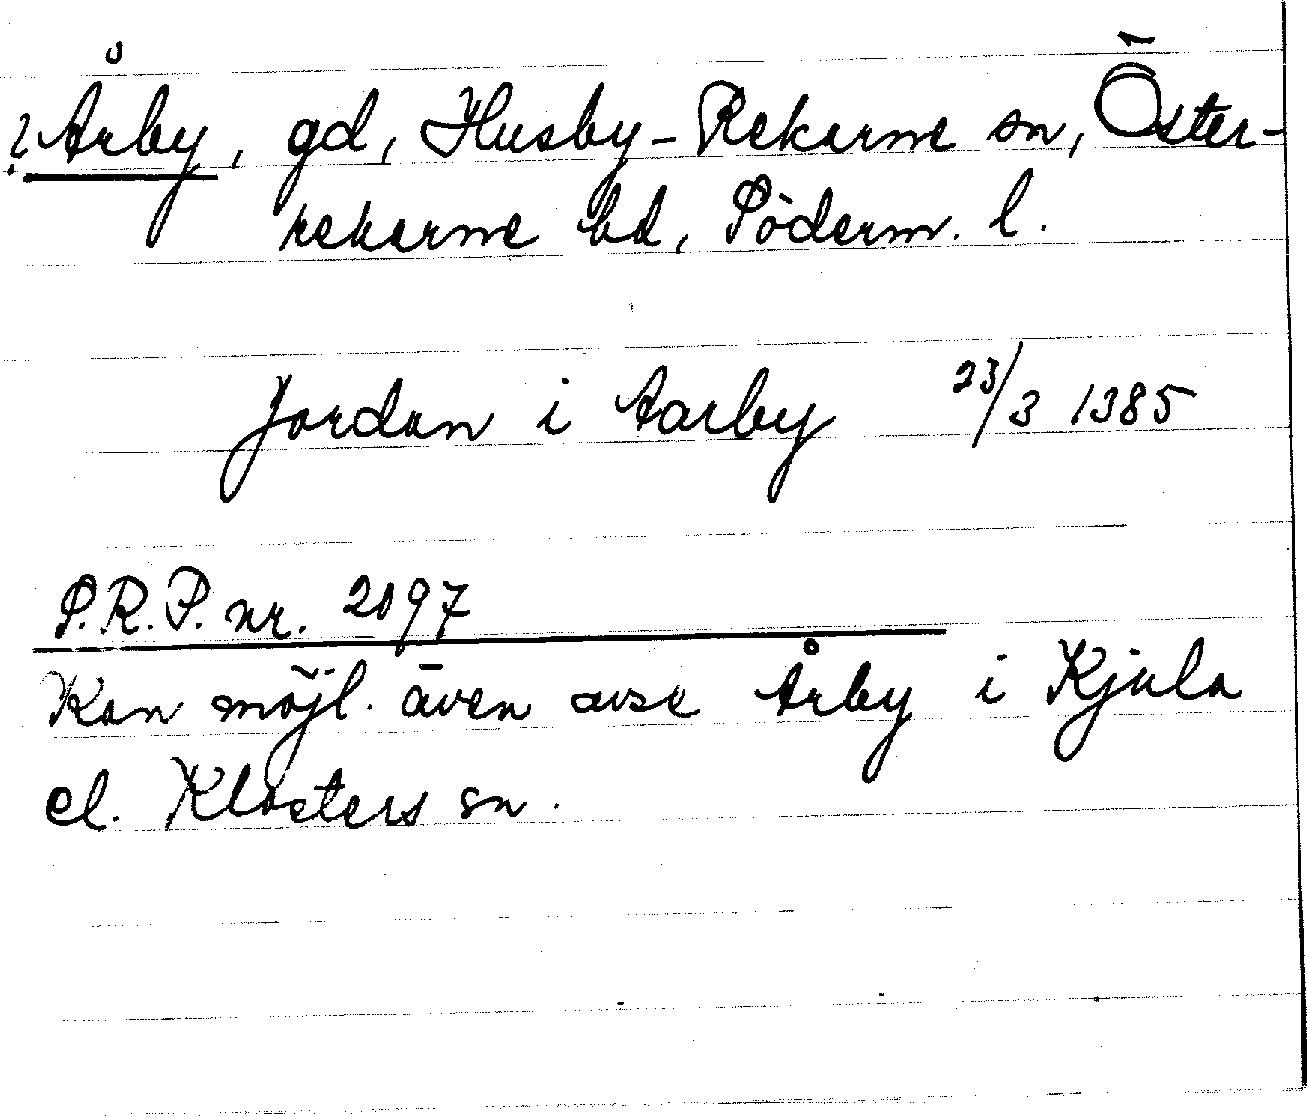 ? Årby, gd, Husby-Rekarne sn, Öster-
rekarne hd, Söderm. l.
Jordan i Aarby 23/3 1385
S.R.P. nr. 2097
Kan möjl. även avse Årby i Kjula
el. Klosters sn.